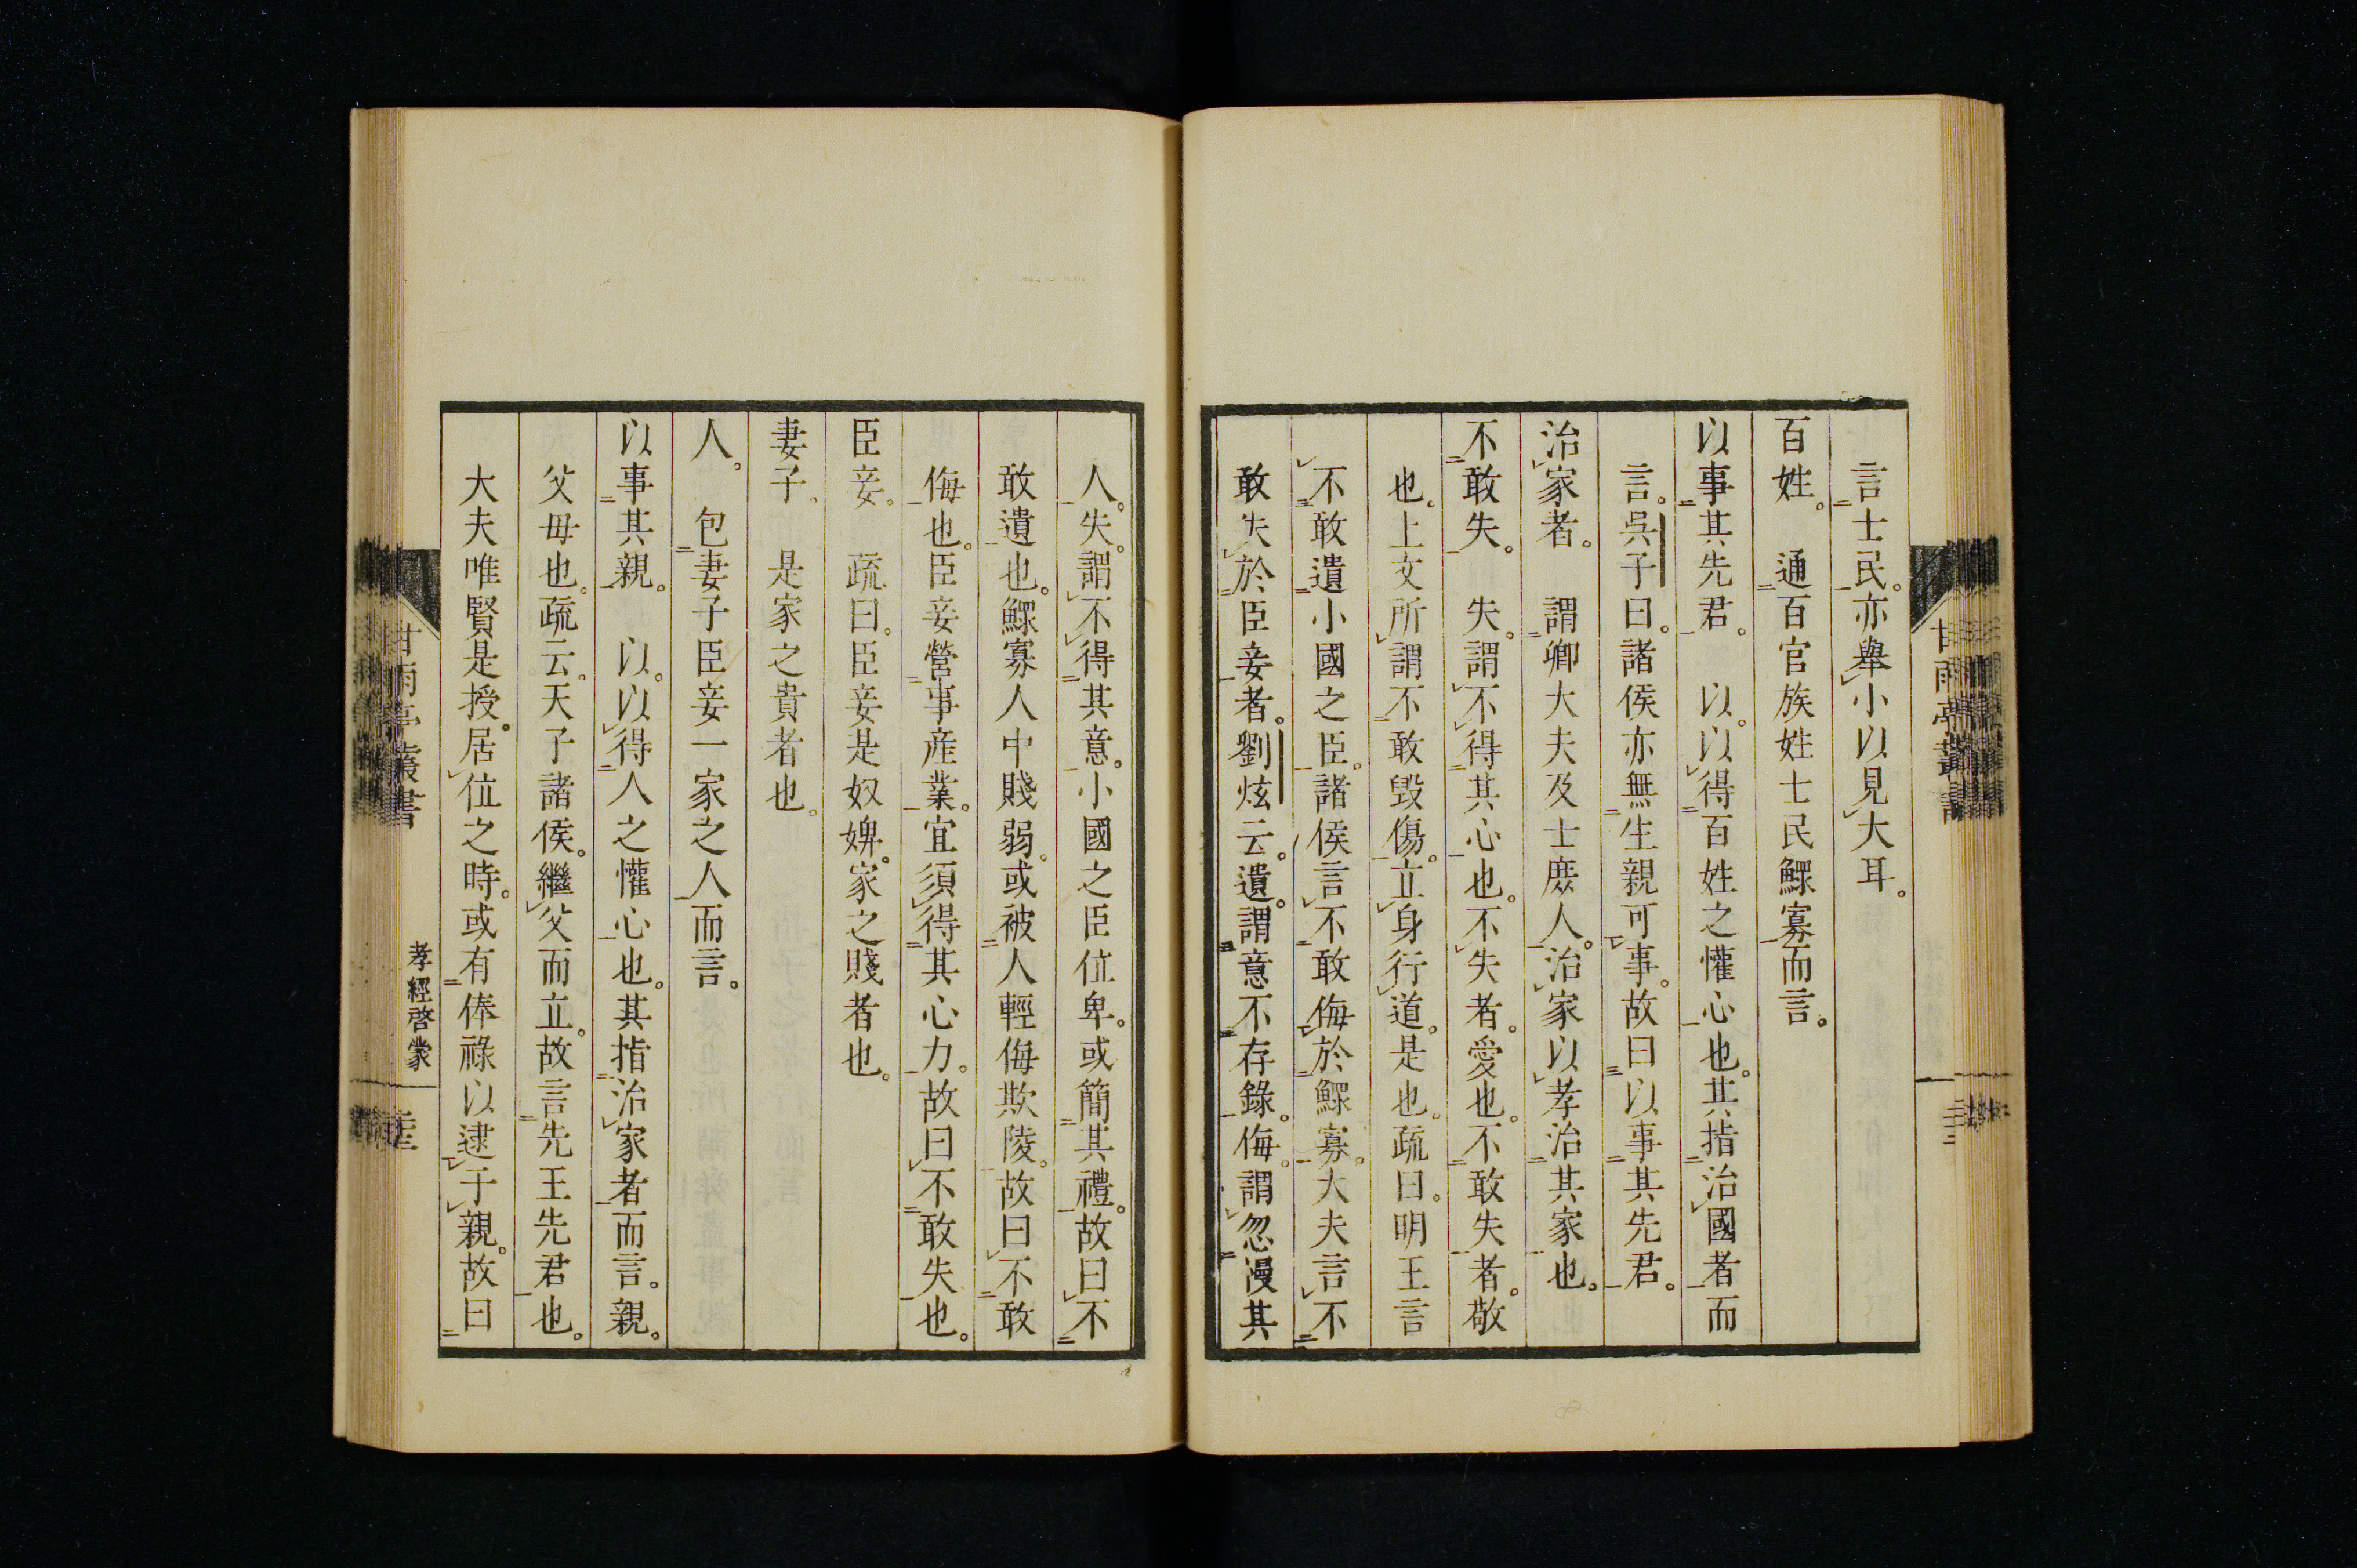 言士民。亦舉小以見大耳。
百姓。　通百官族姓士民鰥寡而言。
以事其先君。　以。以得百姓之懽心也。其指治國者而
言。吳子曰。諸侯亦無生親可事。故曰以事其先君。
治家者。　謂卿大夫及士庶人。治家以孝治其家也。
不敢失。　失。謂不得其心也。不失者。愛也。不敢失者。敬
也。上文所謂不敢毀傷。立身行道。是也。疏曰。明王言
不敢遺小國之臣。諸侯言不敢侮於鰥寡。大夫言不
敢失於臣妾者。劉炫云。遺。謂意不存錄。侮。謂忽漫其
人。失。謂不得其意。小國之臣位卑。或簡其禮。故曰不
敢遺也。鰥寡人中賤弱。或被人輕侮欺陵。故曰不敢
侮也。臣妾營事產業。宜須得其心力。故曰不敢失也。
臣妾。　疏曰。臣妾是奴婢。家之賤者也。
妻子。　是家之貴者也。
人。　包妻子臣妾一家之人而言。
以事其親。　以。以得人之懽心也。其指治家者而言。親。
父母也。疏云。天子諸侯。繼父而立。故言先王先君也。
大夫唯賢是授。居位之時。或有俸祿以逮于親。故曰
甘雨亭叢書
孝經啓蒙